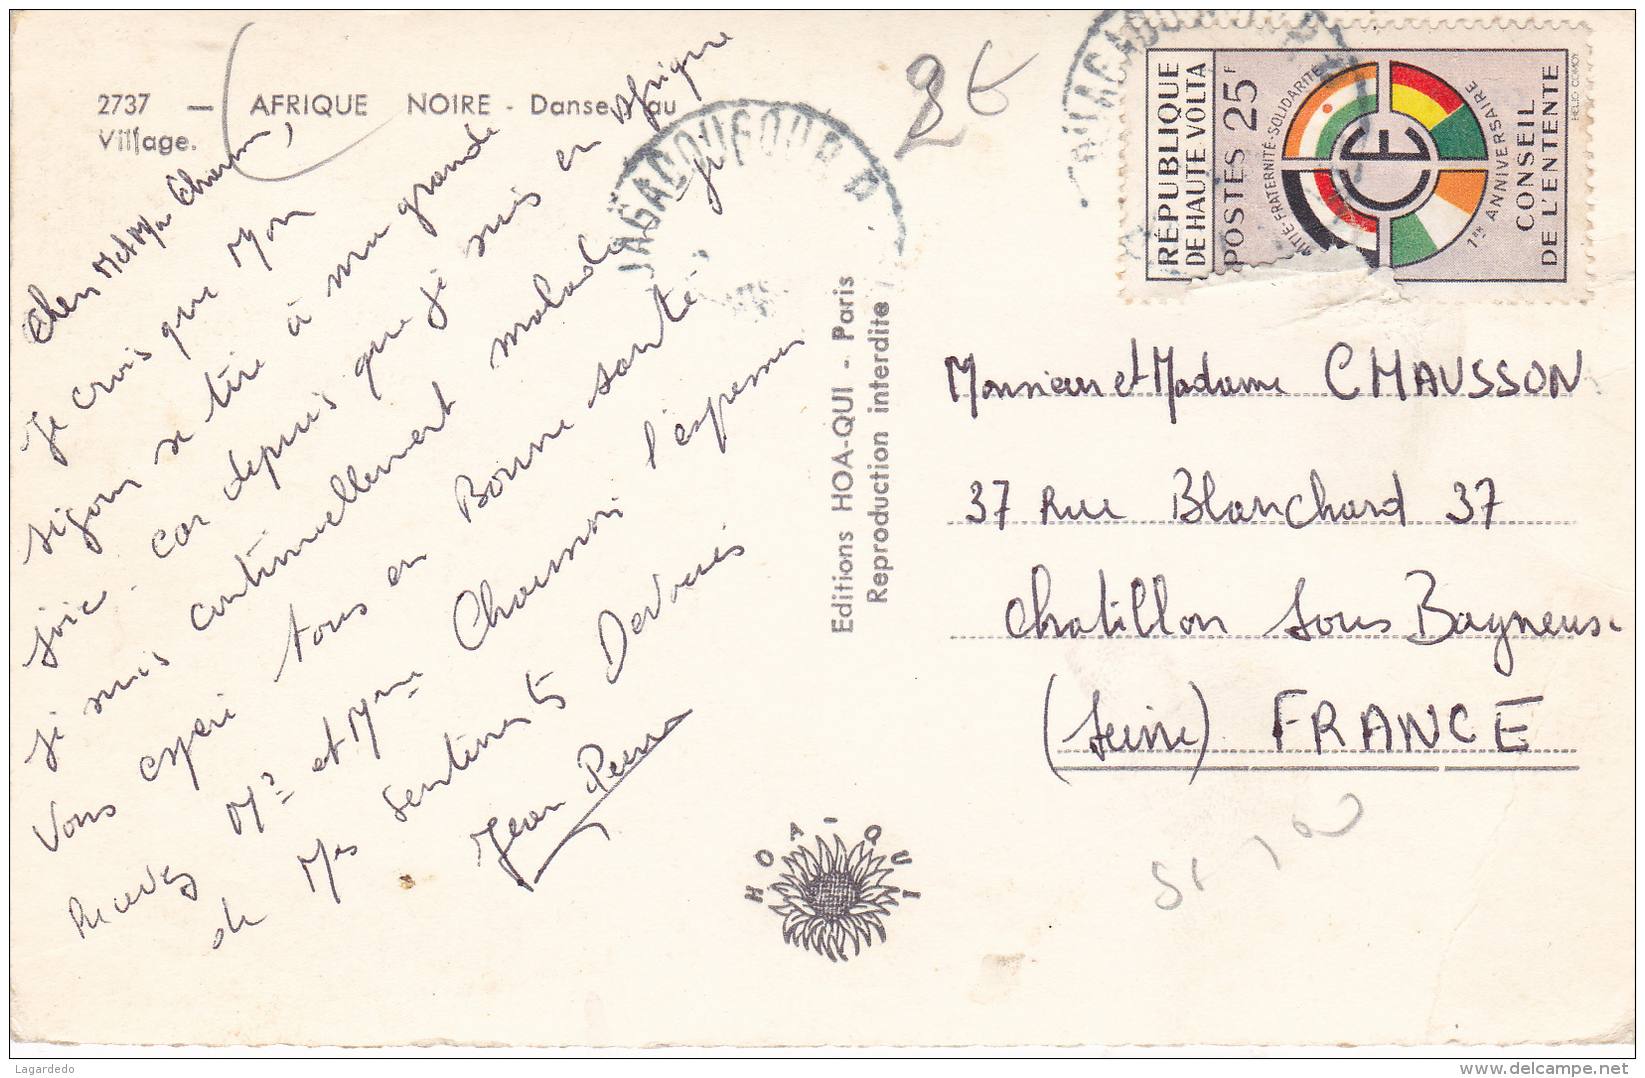 2737 — AFRIQUE NOIRE - Danses au
Village.
2 €
OUAGADOUGOU R P
OUAGADOUGOU R P
RÉPUBLIQUE
DE HAUTE VOLTA
POSTES 25F
MITIÉ-FRATERNITÉ-SOLIDARITÉ
CE
1ER ANNIVERSAIRE
CONSEIL
DE L'ENTENTE
HELIO COMOY
Cher M et Mme Chausson,
Je crois que Mon
séjour se tire à ma grande
joie. car depuis que je suis en Afrique
je suis continuellement malade. Je
vous espère tous en Bonne santé.
Recevez Mr et Mme Chausson l'expression
de Mes sentiments Dévoués
Jean Pierre
Editions HOA-QUI - Paris
Reproduction interdite
HOA-QUI
Monsieur et Madame CHAUSSON
37 Rue Blanchard 37
Chatillon Sous Bagneux
(Seine) FRANCE
Lagardedo
www.delcampe.net